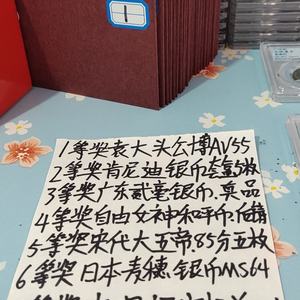 1
1等奖袁大头公博AV55
2等奖肯尼迪银币套盒5枚
3等奖广东贰毫银币.真品
4等奖自由女神和平币.
5等奖宋代大五帝.85分五枚
6等奖日本麦穗银币MS64